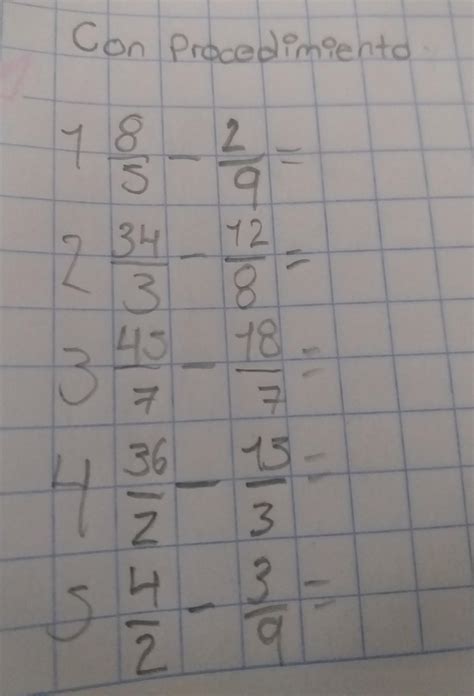 Con Procedimiento.
1 8/5 - 2/9 =
2 34/3 - 12/8 =
3 45/7 - 18/7 =
4 36/2 - 15/3 =
5 4/2 - 3/9 =